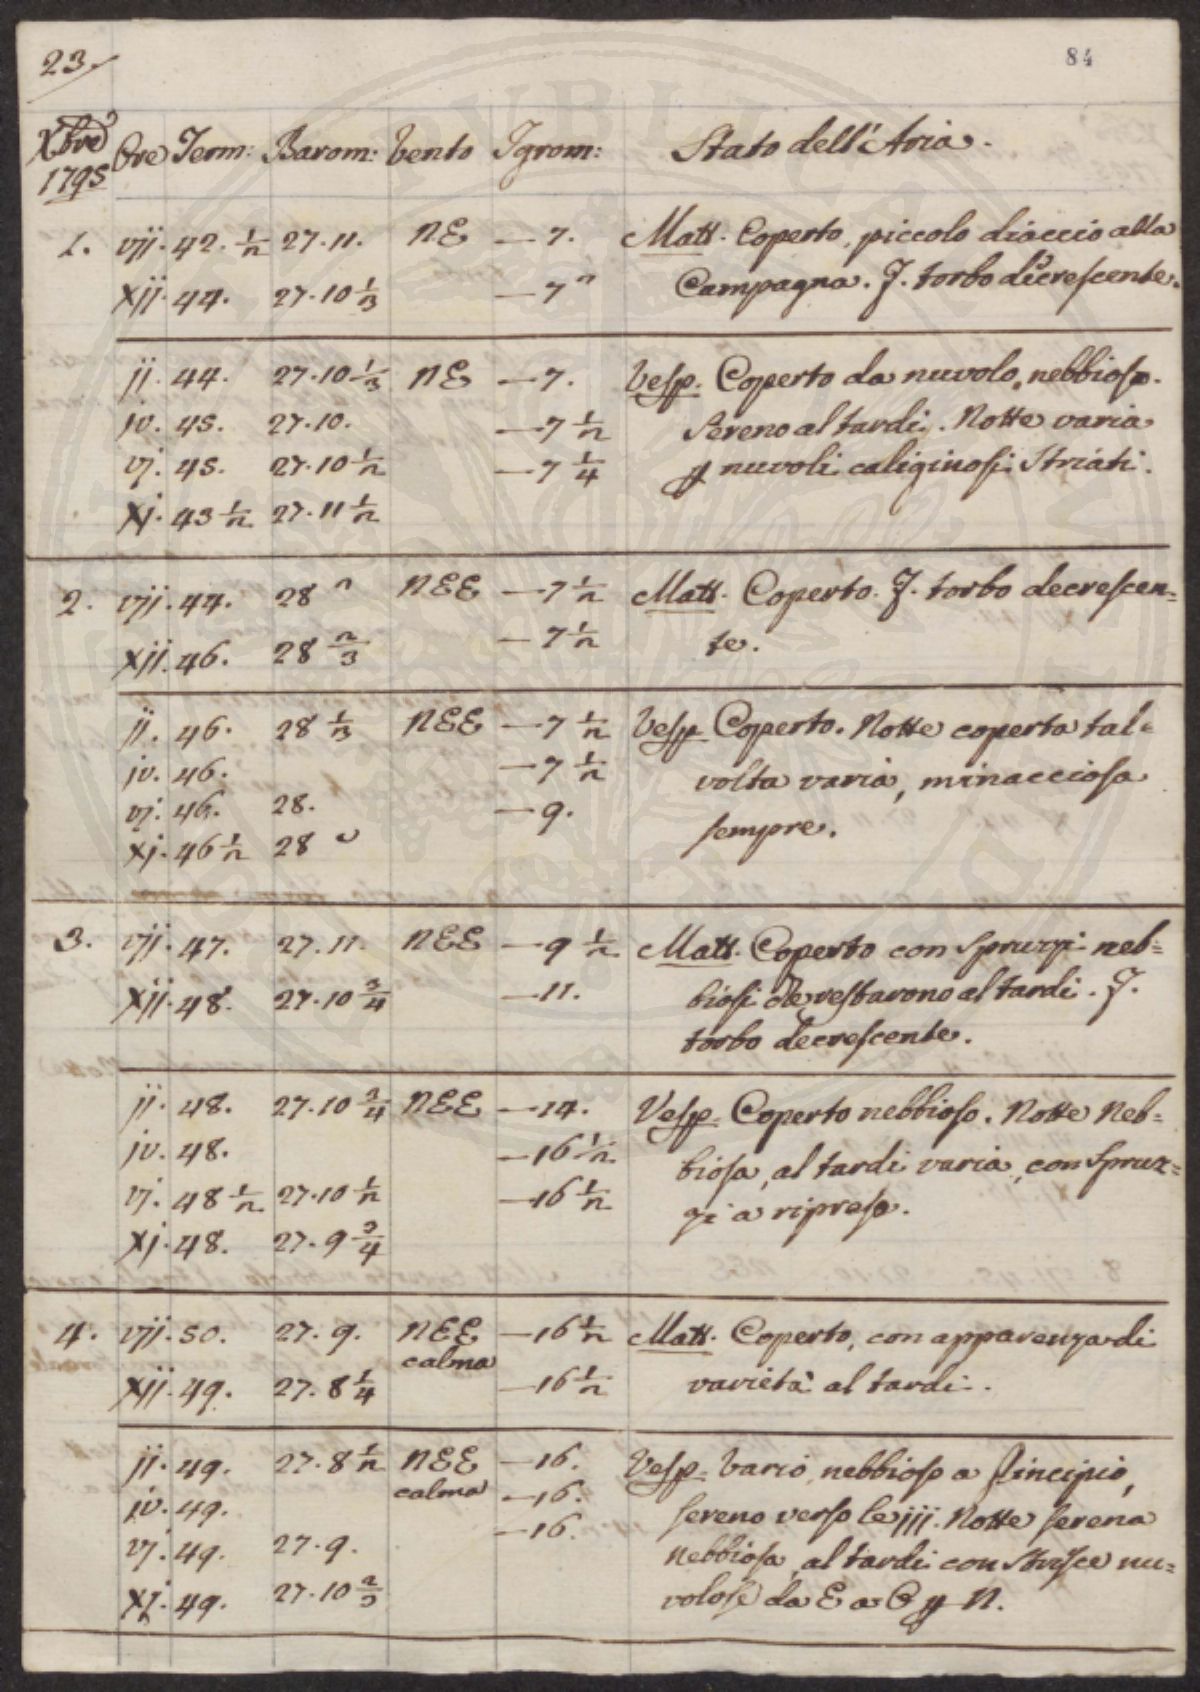 23.
84
Xbre 1795 Ore Term: Barom: Vento Igrom: Stato dell'Aria.
1. vij. 42. 1/2 27.11. NE —7. Matt. Coperto, piccolo diaccio alla
xij. 44. 27.10 1/3 —7 Campagna. F. torbo decrescente.
ij. 44. 27.10 1/3 NE —7. Vesp. Coperto da nuvolo, nebbioso.
iv. 45. 27.10. —7 1/2 Sereno al tardi. Notte varia
vj. 45. 27.10 1/2 —7 1/4 p nuvoli caliginosi striati.
xj. 43 1/2 27.11 1/2
2. vij. 44. 28 NEE —7 1/2 Matt. Coperto. F. torbo decrescen=
xij. 46. 28 2/3 —7 1/2 te.
ij. 46. 28 1/3 NEE —7 1/2 Vesp. Coperto. Notte coperta tal=
iv. 46. —7 1/2 volta varia, minacciosa
vj. 46. 28. —9. sempre.
xj. 46 1/2 28
3. vij. 47. 27.11. NEE —9 1/2 Matt. Coperto con spruzzi neb=
xij. 48. 27.10 3/4 —11. biosi che restarono al tardi. F.
torbo decrescente.
ij. 48. 27.10 3/4 NEE —14. Vesp. Coperto nebbioso. Notte neb=
iv. 48. —16 1/2 biosa, al tardi varia, con spruz=
vj. 48 1/2 27.10 1/2 —16 1/2 zi a ripresa.
xj. 48. 27.9 3/4
4. vij. 50. 27.9. NEE —16 1/2 Matt. Coperto, con apparenza di
calma
xij. 49. 27.8 1/4 —16 1/2 varietà al tardi.
ij. 49. 27.8 1/2 NEE —16. Vesp. Vario, nebbioso a principio,
iv. 49. calma —16. sereno verso le iij. Notte serena
vj. 49. 27.9. —16. nebbiosa, al tardi con strisce nu=
xj. 49. 27.10 2/3 volose da E a O p N.